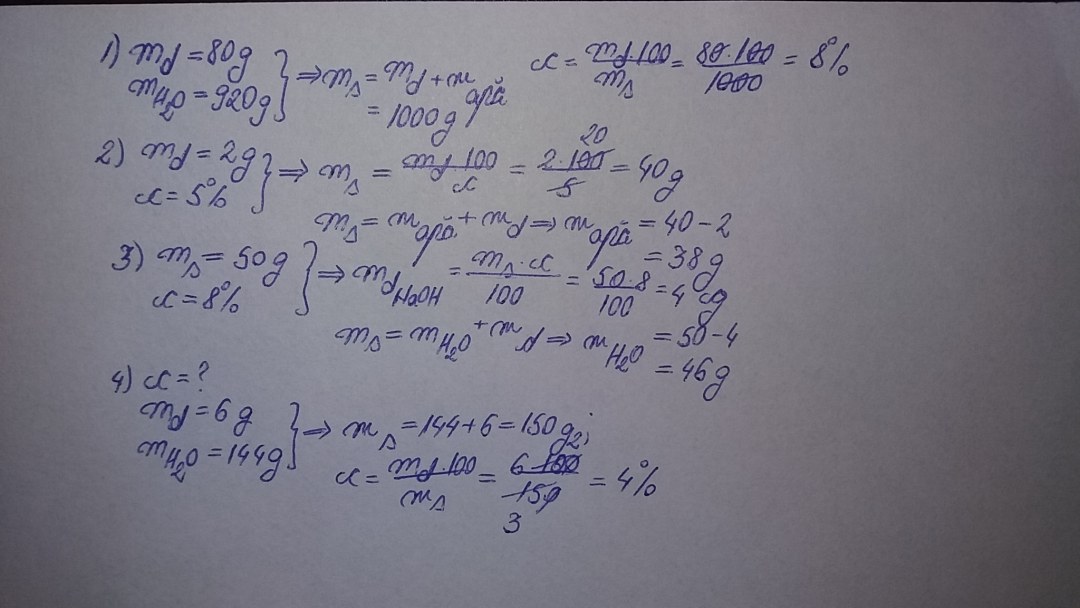 1) md = 80g
mH₂O = 920g } ⇒ ms = md + m apă = 1000g
c = md·100/ms = 80·100/1000 = 8%
2) md = 2g
c = 5% } ⇒ ms = md·100/c = 2·100/5 = 40g
20
ms = m apă + md ⇒ m apă = 40-2
= 38g
3) ms = 50g
c = 8% } ⇒ md NaOH = ms·c/100 = 50·8/100 = 4g
ms = mH₂O + md ⇒ mH₂O = 50-4
= 46g
4) c = ?
md = 6g
mH₂O = 144g } ⇒ ms = 144+6 = 150g;
c = md·100/ms = 6·100/150 = 4%
2
3